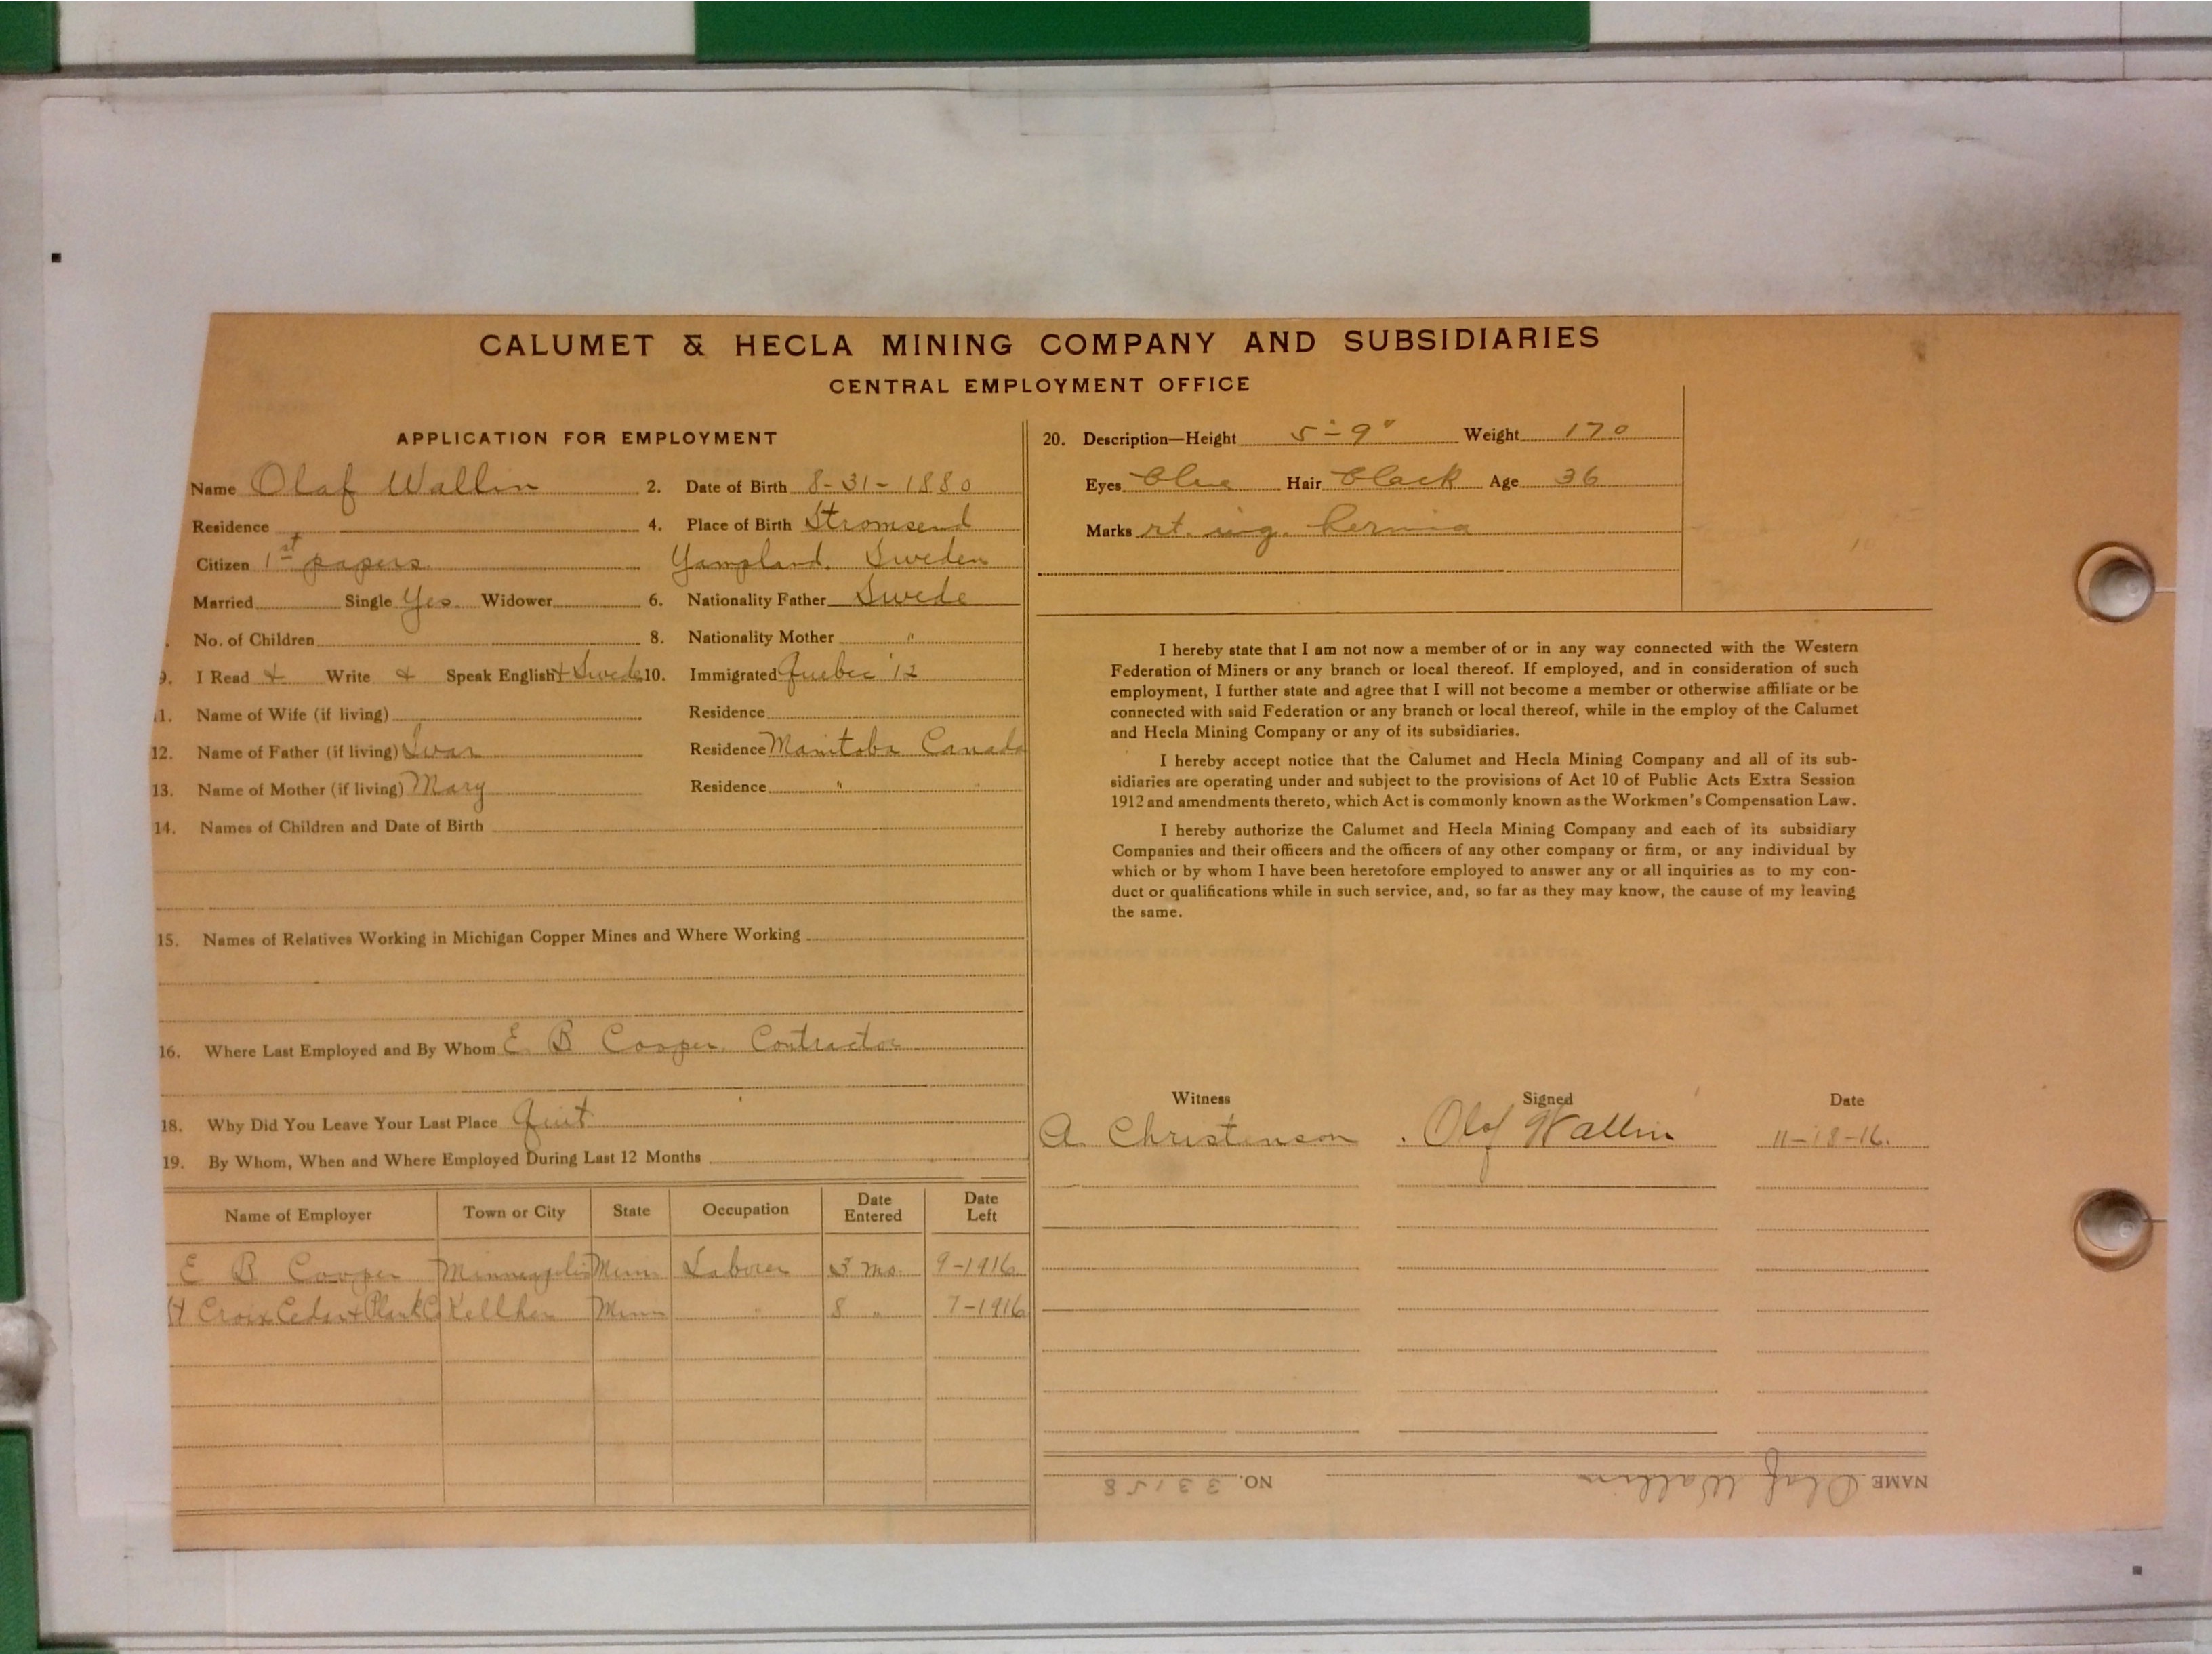 CALUMET & HECLA MINING COMPANY AND SUBSIDIARIES
CENTRAL EMPLOYMENT OFFICE
APPLICATION FOR EMPLOYMENT
Name Olaf Wallin 2. Date of Birth 8-31-1880
Residence 4. Place of Birth Stromsend
Citizen 1st papers Yampland. Sweden
Married Single Yes. Widower 6. Nationality Father Swede
No. of Children 8. Nationality Mother "
9. I Read + Write + Speak English + Swede 10. Immigrated Quebec '12
11. Name of Wife (if living) Residence
12. Name of Father (if living) Ivar Residence Manitoba Canada
13. Name of Mother (if living) Mary Residence "
14. Names of Children and Date of Birth
15. Names of Relatives Working in Michigan Copper Mines and Where Working
16. Where Last Employed and By Whom E B Cooper. Contractor
18. Why Did You Leave Your Last Place Quit
19. By Whom, When and Where Employed During Last 12 Months
Name of Employer Town or City State Occupation Date Entered Date Left
E B Cooper Minneapolis Minn Laborer 3 mo. 9-1916
Croix Cedar + Plank C Kellher Minn " 8 " 7-1916
20. Description—Height 5'-9" Weight 170
Eyes blue Hair black Age 36
Marks rt. ing. hernia
I hereby state that I am not now a member of or in any way connected with the Western
Federation of Miners or any branch or local thereof. If employed, and in consideration of such
employment, I further state and agree that I will not become a member or otherwise affiliate or be
connected with said Federation or any branch or local thereof, while in the employ of the Calumet
and Hecla Mining Company or any of its subsidiaries.
I hereby accept notice that the Calumet and Hecla Mining Company and all of its sub-
sidiaries are operating under and subject to the provisions of Act 10 of Public Acts Extra Session
1912 and amendments thereto, which Act is commonly known as the Workmen's Compensation Law.
I hereby authorize the Calumet and Hecla Mining Company and each of its subsidiary
Companies and their officers and the officers of any other company or firm, or any individual by
which or by whom I have been heretofore employed to answer any or all inquiries as to my con-
duct or qualifications while in such service, and, so far as they may know, the cause of my leaving
the same.
Witness Signed Date
A. Christenson Olof Wallin 11-18-16.
NAME Olaf Wallin NO. 33158